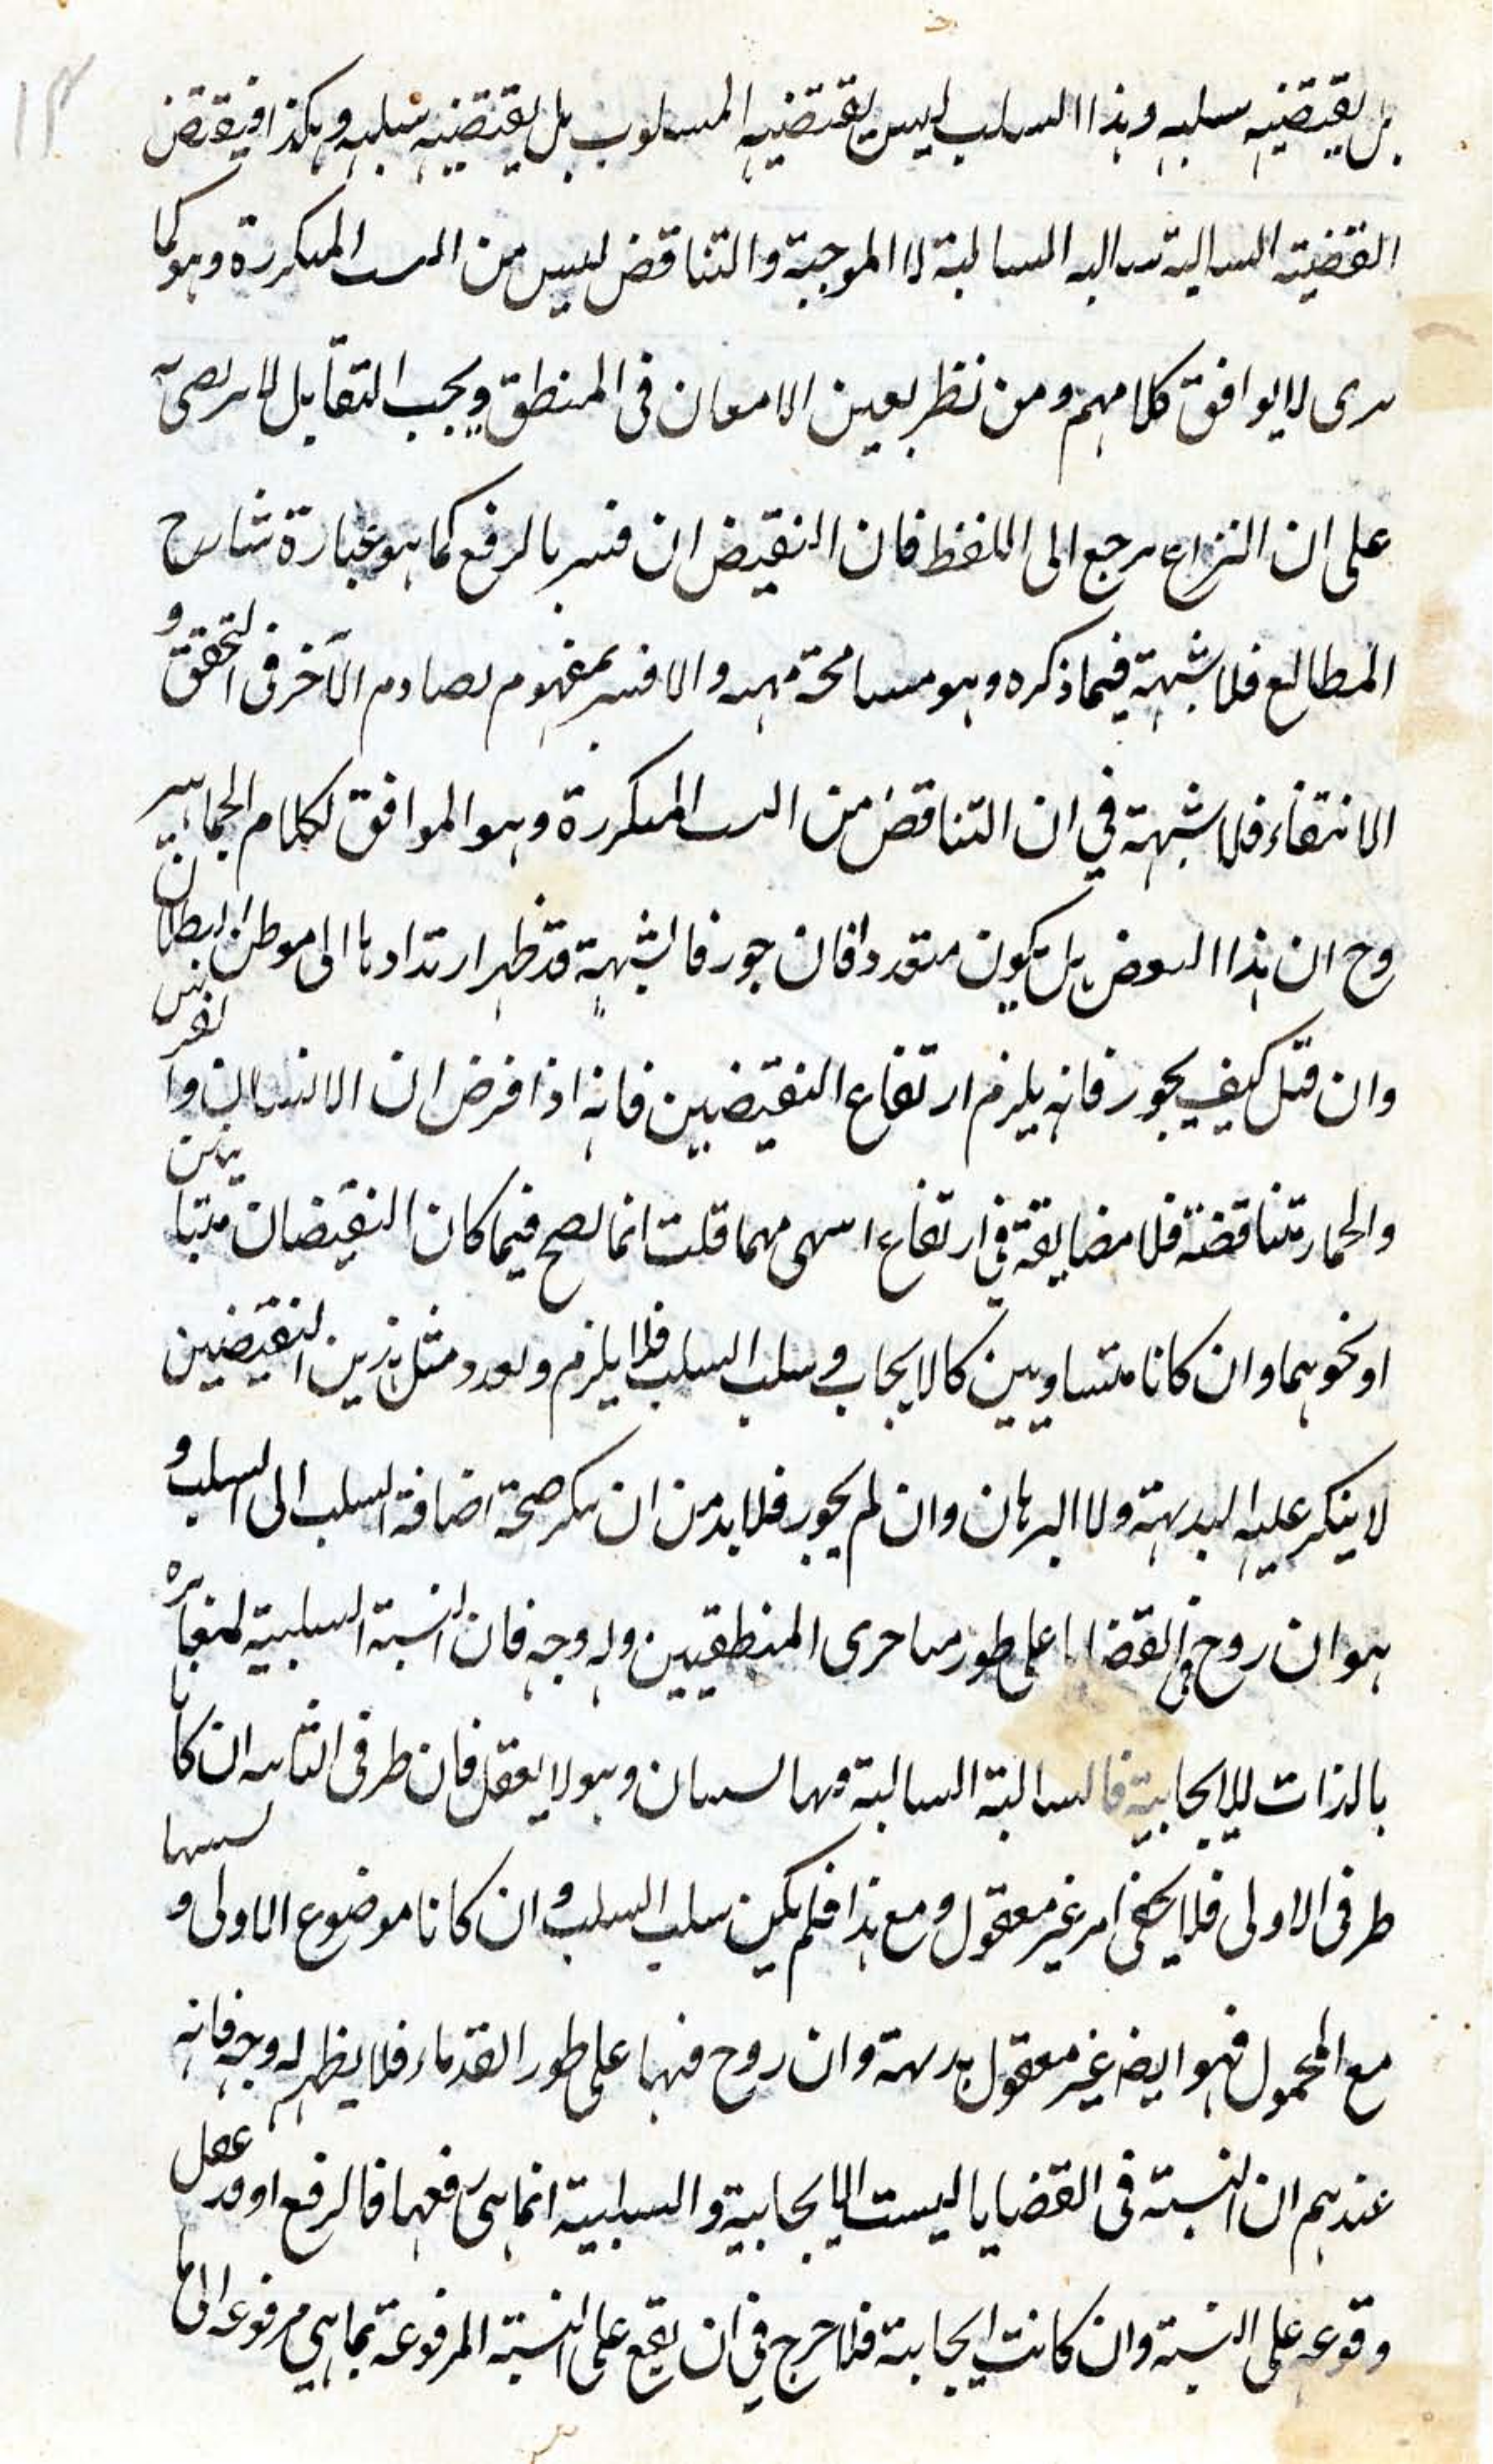 ١٣
بل يقتضيه سلبه وهذا السلب ليس يقتضيه المسلوب بل يقتضيه سلبه وهكذا فنقيض
القضية السالبة سالبه السالبة لا الموجبة والتناقض ليس من النسب المتكررة وهو كما
ترى لا يوافق كلامهم ومن نظر بعين الامعان فى المنطق وبحث التقابل لا يرضى به
على ان النزاع يرجع الى اللفظ فان النقيض ان فسر بالرفع كما هو عبارة شارح
المطالع فلا شبهة فيما ذكره وهو مسامحة منهم والا فسر بمفهوم يصادم الآخر فى التحقق و
الانتفاء فلا شبهة في ان التناقض من النسب المتكررة وهو الموافق لكلام الجماهير
وح ان هذا البعض بل يكون متعددا فان جوز فالشبهة قد ظهر ارتدادها الى موطن البطلان
وان قيل كيف يجوز فانه يلزم ارتفاع النقيضين فانه اذا فرض ان الانسان والفرس
والحمار متناقضة فلا مضايقة في ارتفاع اى منها قلت انما يصح فيما كان النقيضان متباينين
او نحوهما وان كانا متساويين كالايجاب وسلب السلب فلا يلزم وتعدد مثل هذين النقيضين
لا ينكر عليه البديهة ولا البرهان وان لم يجوز فلا بد من ان ينكر صحة اضافة السلب الى السلب و
هو ان روح فى القضايا على طور متأخرى المنطقيين وله وجه فان النسبة السلبية لمغايرة
بالذات للايجابية فالسالبة السالبة فيها نسبتان وهو لا يعقل فان طرفى الثانية ان كانا
طرفى الاولى فلا يخفى امر غير معقول ومع هذا فلم يكن سلب السلب وان كانا موضوع الاولى و نسبتها
مع المحمول فهو ايضا غير معقول بديهة وان روح فيها على طور القدماء فلا يظهر له وجه فانه
عندهم ان النسبة فى القضايا ليست الا الايجابية والسلبية انما هى رفعها فالرفع او قد عقل
وقوعه على النسبة وان كانت ايجابية فلا حرج في ان يقع على النسبة المرفوعة بما هي مرفوعة